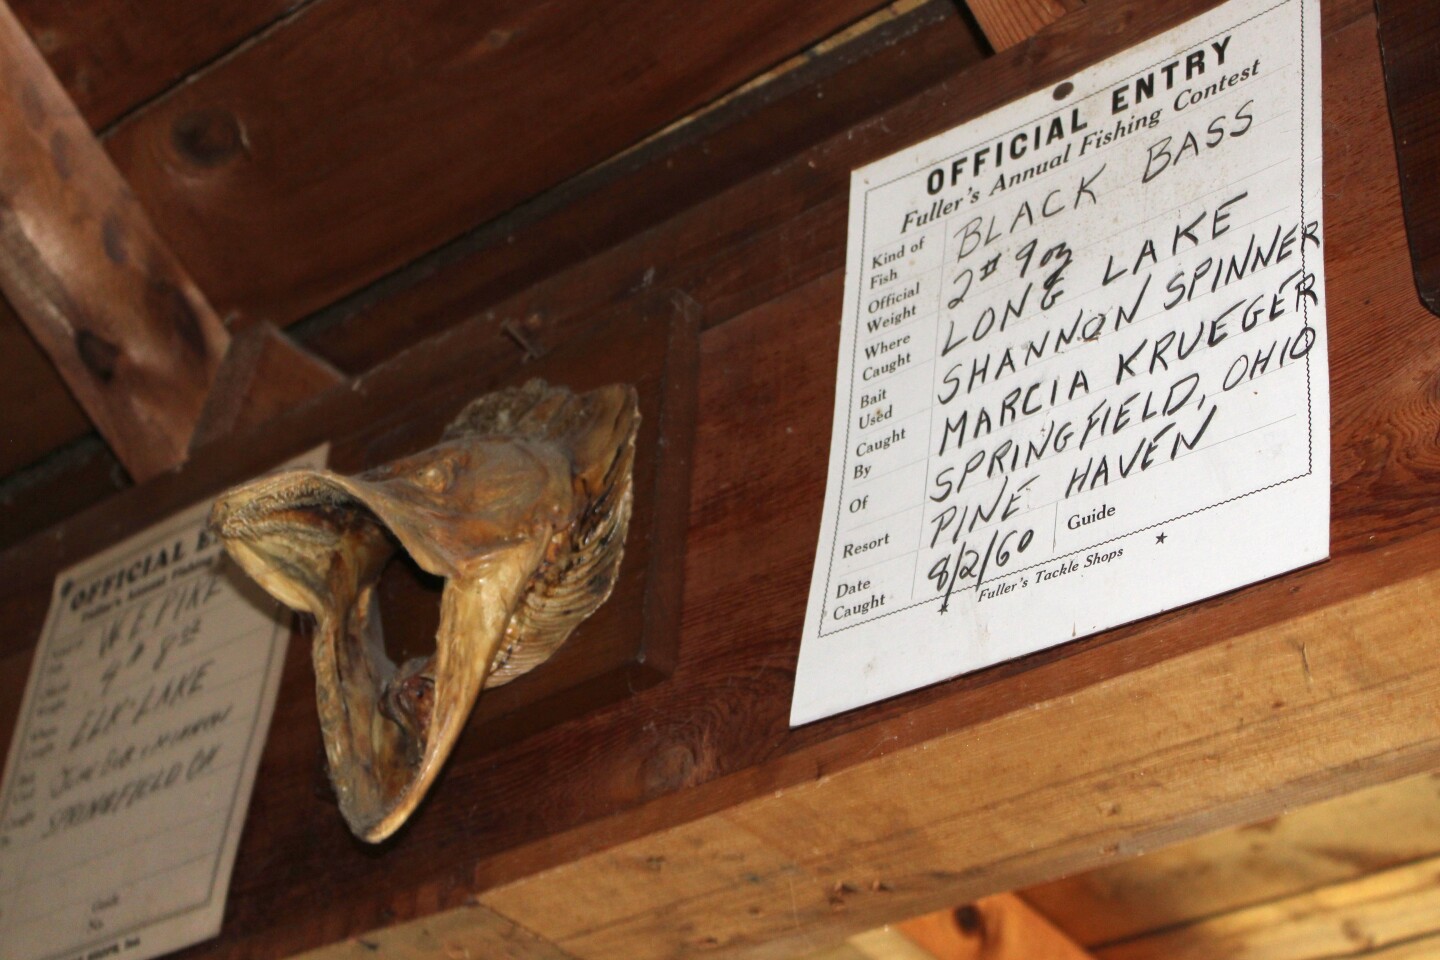 OFFICIAL ENTRY
Fuller's Annual Fishing Contest
Kind of Fish BLACK BASS
Official Weight 2# 9 oz
Where Caught LONG LAKE
Bait Used SHANNON SPINNER
Caught By MARCIA KRUEGER
Of SPRINGFIELD, OHIO
Resort PINE HAVEN
Date Caught 8/2/60 Guide
Fuller's Tackle Shops
OFFICIAL
Fuller's Annual Fishing
ELK LAKE
SPRINGFIELD